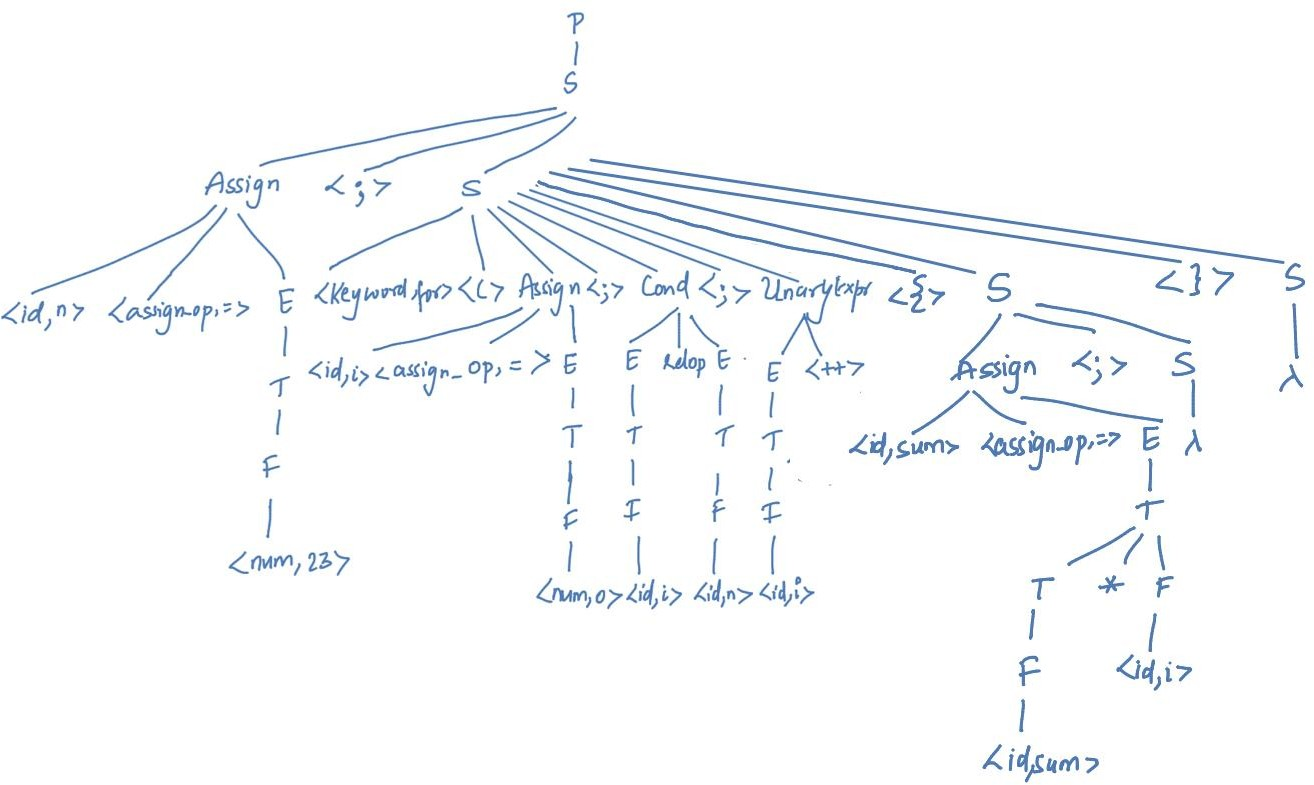 P
S
Assign <;> S
<id,n> <assign_op,=> E <keyword,for> <(> Assign <;> Cond <;> UnaryExpr <{> S <}> S
T <id,i> <assign_op,=> E E Relop E E <++> Assign <;> S λ
F T T T T <id,sum> <assign_op,=> E λ
<num,23> F F F F T
<num,0> <id,i> <id,n> <id,i> T * F
F <id,i>
<id,sum>